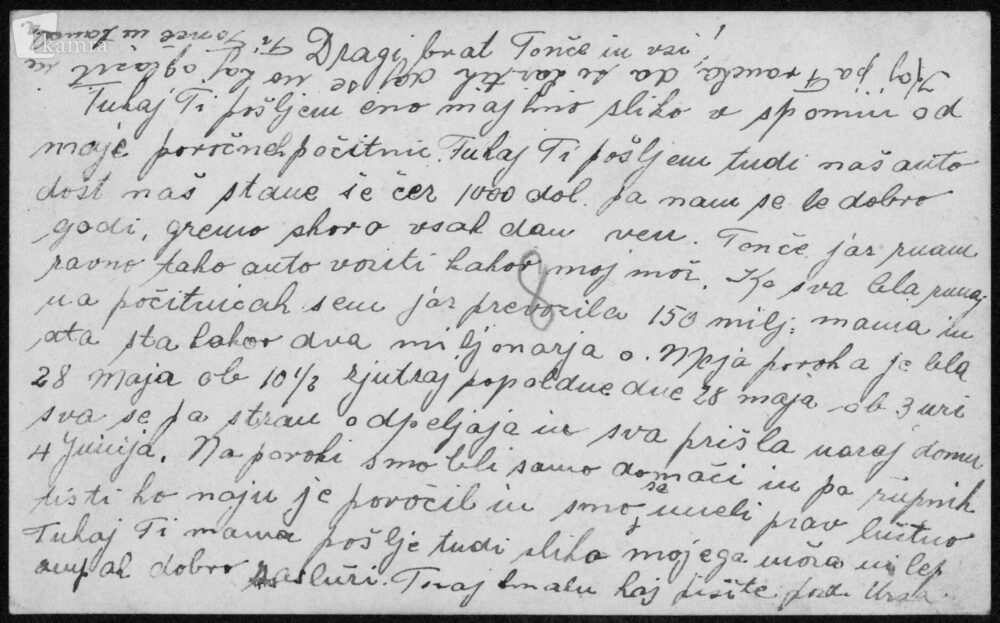 kamra
Dragi brat Tonče in vsi!
Tukaj Ti pošljem eno majhno sliko v spomin od
moje poročneh počitnic. Tukaj Ti pošljem tudi naš auto
dost naš stane še čer 1000 dol. pa nam se le dobro
godi, gremo skoro vsak dan ven. Tonče jaz znam
ravno tako auto voziti kakor moj mož. Ko sva bla zunaj
na počitnicah sem jaz prevozila 150 milj. mama in
ata sta kakor dva miljonarja o. Moja poroka je bla
28 Maja ob 10 1/2 zjutraj popoldne dne 28 maja ob 3 uri
sva se pa stran odpeljaja in sva prišla nazaj domu
4 Junija. Na poroki smo bli samo domači in pa župnik
tisti ko naju je poročil in smo se imeli prav luštno
Tukaj Ti mama pošlje tudi sliko mojega moža ni lep
ampak dobro zasluži. Torej kmalu kaj pišite
8
Kaj pa Francka, da se
Tonče in